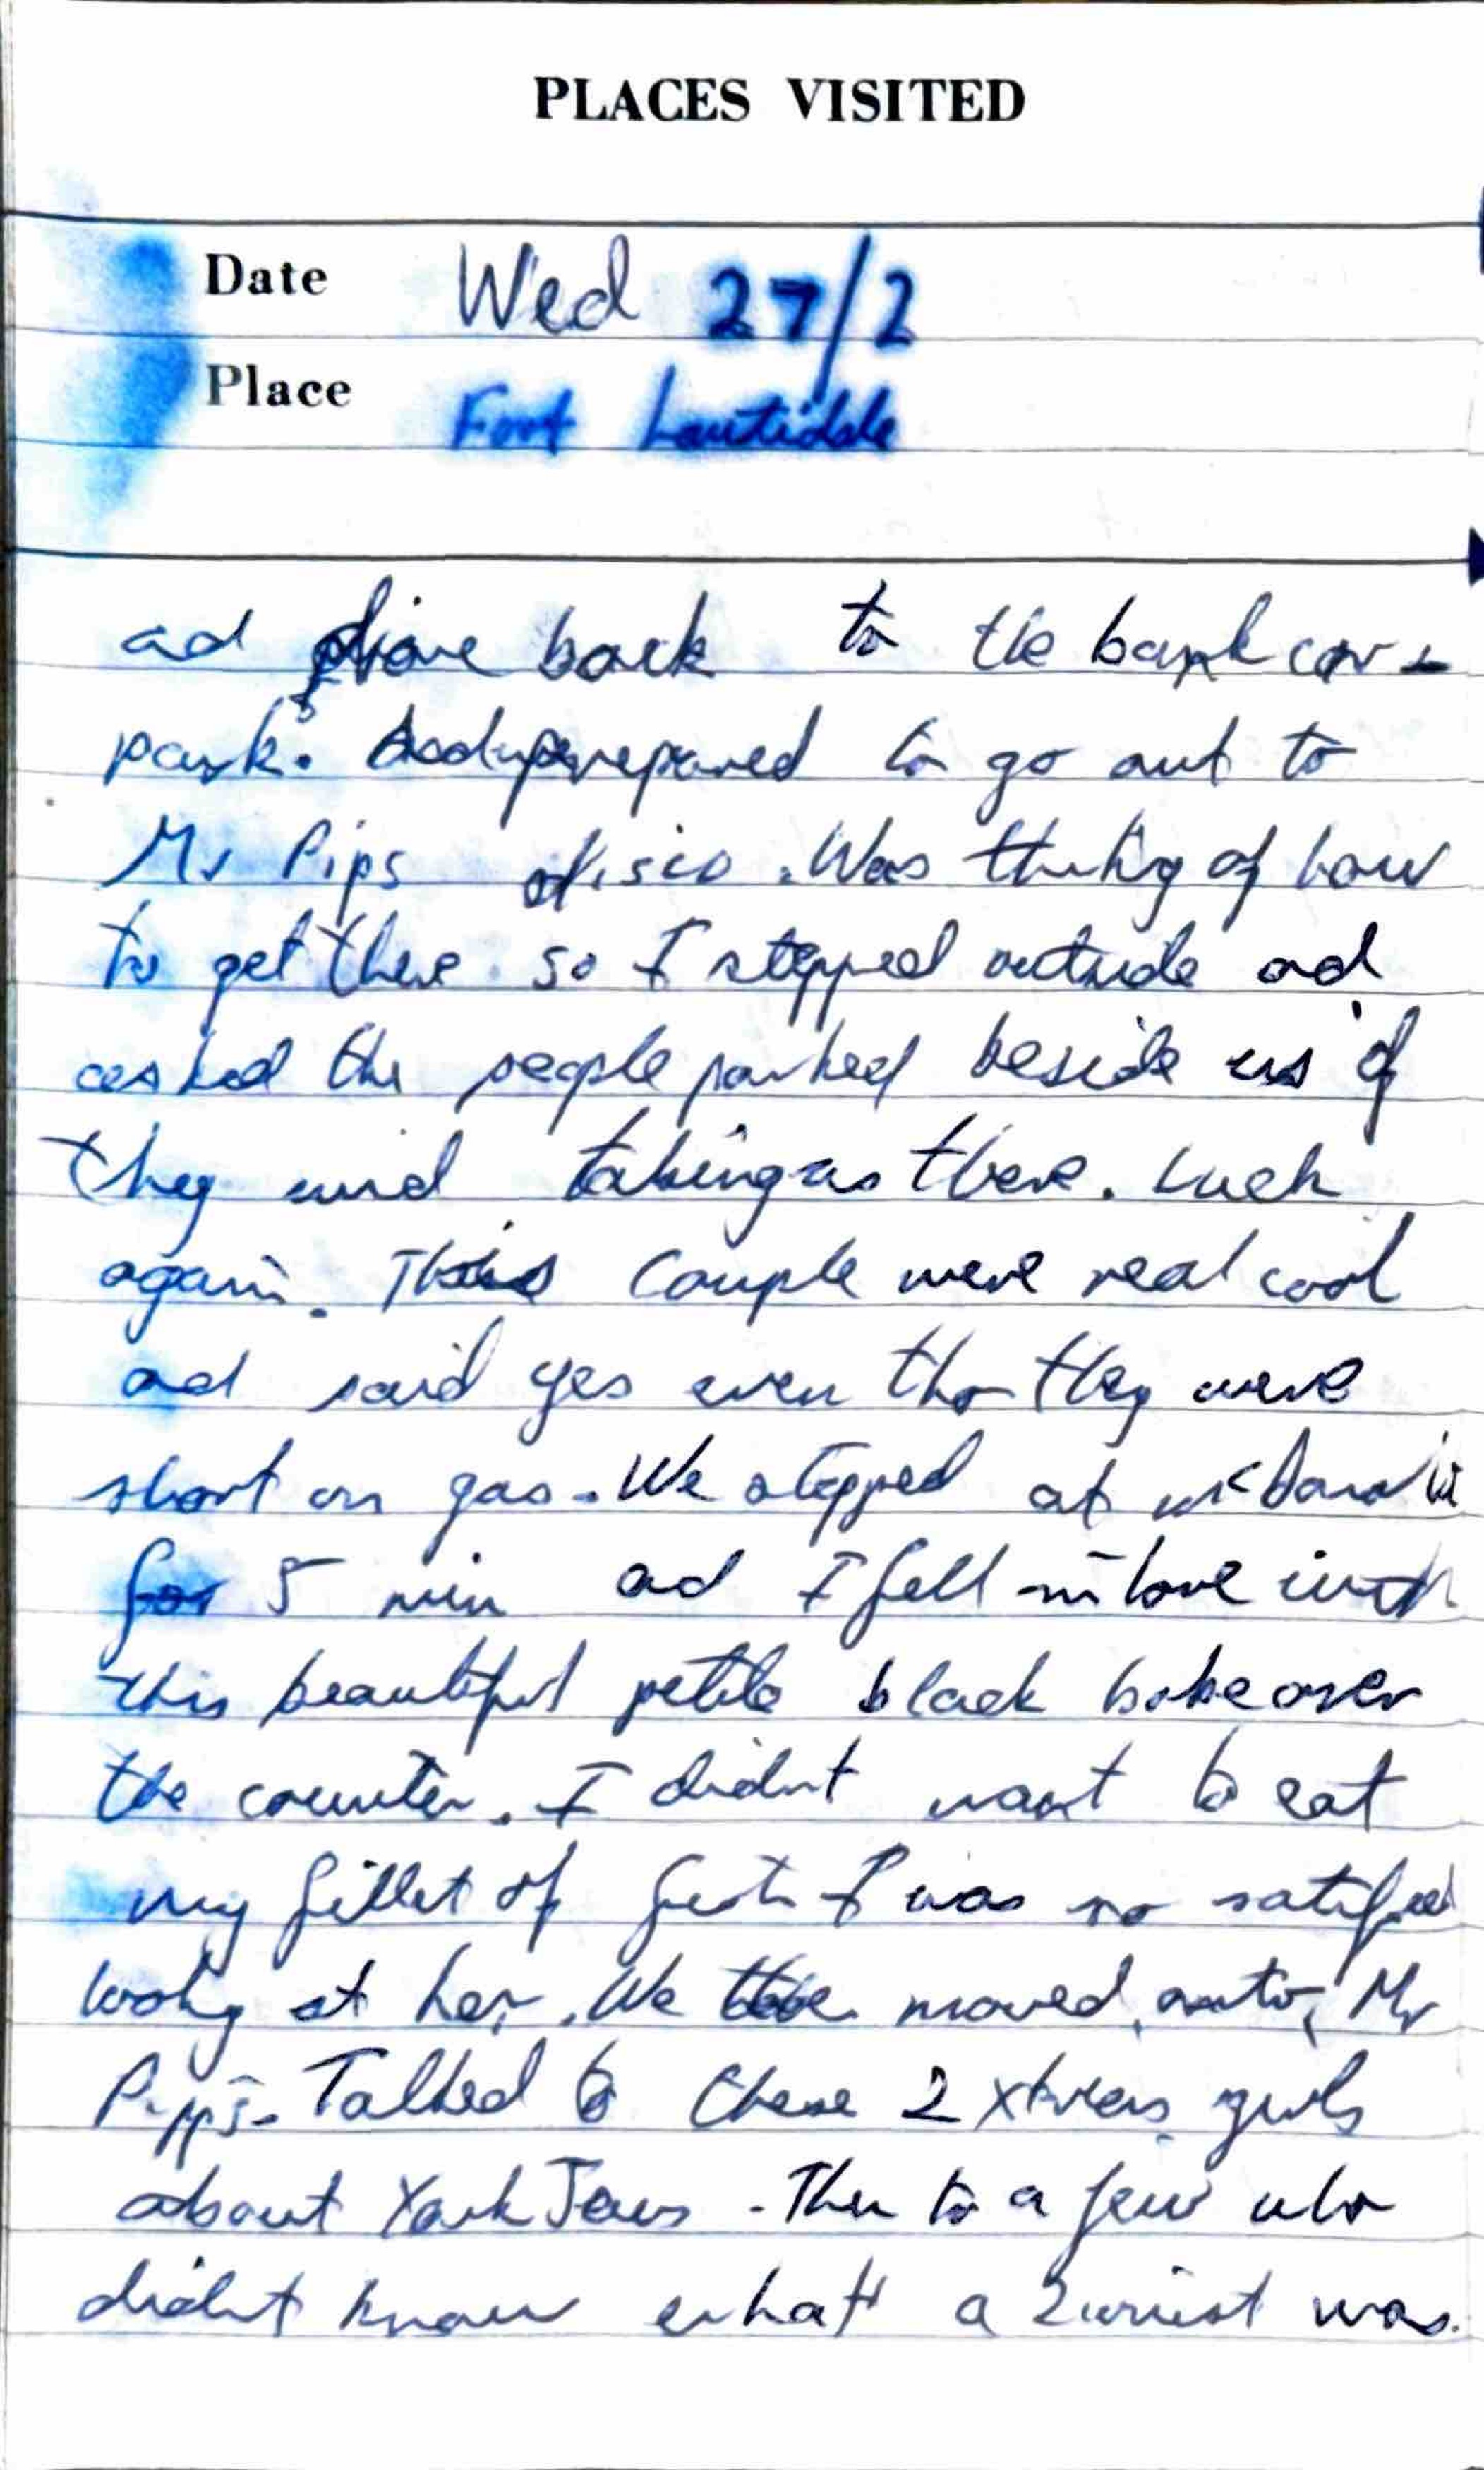 PLACES VISITED
Date Wed 27/2
Place Fort Lautidale
ad drove back to the bank car
park. prepared to go out to
Mr Pips disco. Was of how
to get there so I stepped outside ad
asked the people parked beside us if
they mind taking us there. Luck
again. This couple were real cool
ad said yes even tho they were
short on gas. We stopped at
for 5 min ad I fell in love with
this beautiful petite black babe over
the counter. I didnt want to eat
my fillet of I was so
at her. We moved onto Mr
Pipps. Talked to these 2 girls
about Jews. Then to a few who
didnt know what a was.